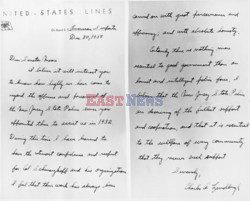 UNITED · STATES LINES
Dec 30, 1935
Dear Senator Moore
I believe it will interest you
to know how highly we have come to
regard the officers and personnel of
the New Jersey State Police
appointed them to assist us in 1932.
During this time I have had
the utmost confidence and respect
for Col Schwarzkopf and his organization
I feel that their work has always been
carried on with great perseverance and
efficiency, and with absolute
Certainly there is nothing more
essential to good government than an
honest and intelligent police force. I
believe that the New Jersey State Police
are deserving of the fullest support
and cooperation, and that it is essential
to the welfare of any community
that they receive such support
Sincerely,
Charles A. Lindbergh
EAST NEWS